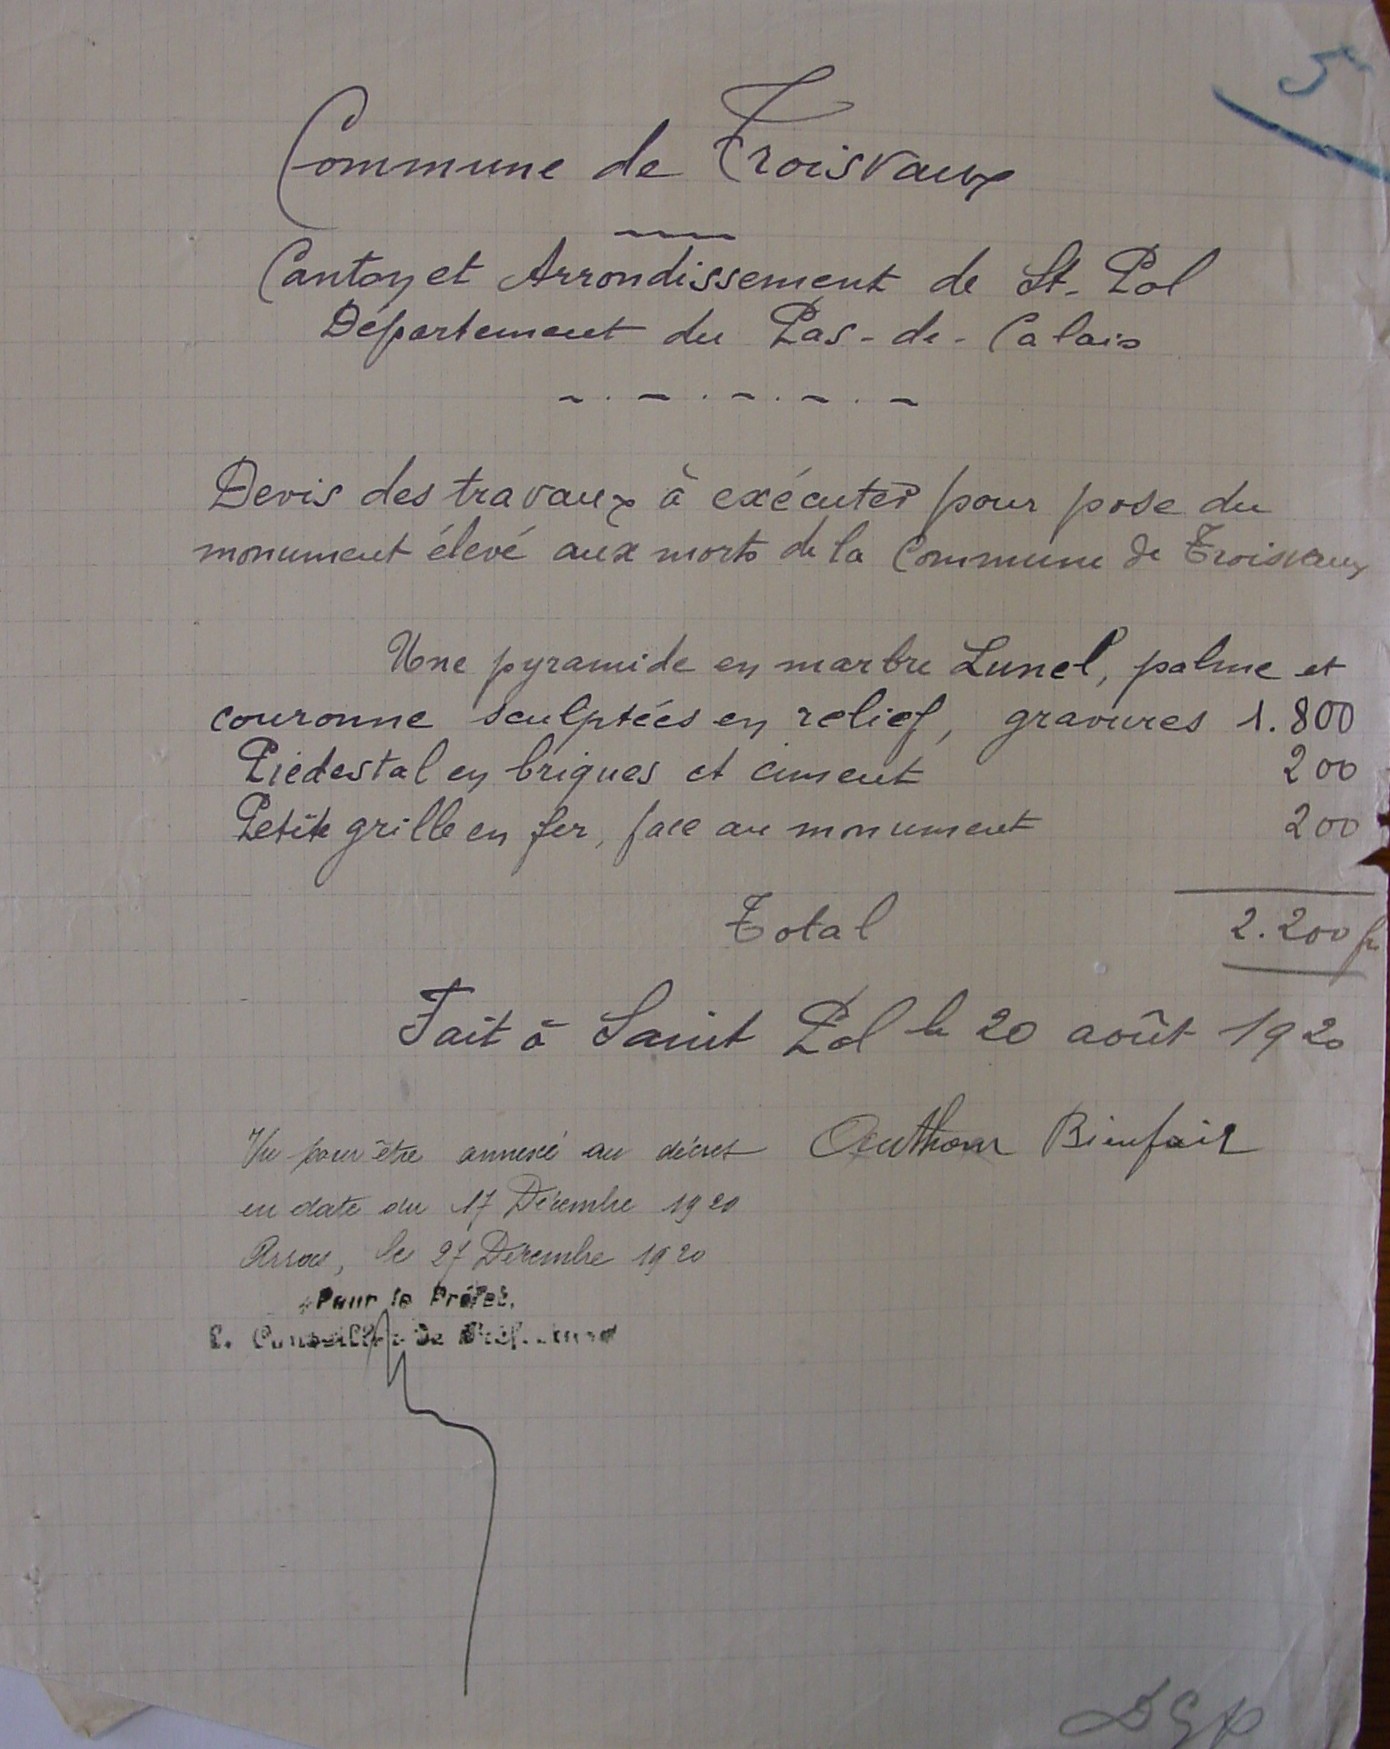 5
Commune de Troisvaux
Canton et Arrondissement de St-Pol
Département du Pas-de-Calais
Devis des travaux à exécuter pour pose du
monument élevé aux morts de la Commune de Troisvaux
Une pyramide en marbre Lunel, palme et
couronne sculptées en relief, gravures 1.800
Piédestal en briques et ciment 200
Petite grille en fer, face au monument 200
Total 2.200 fr
Fait à Saint Pol le 20 août 1920
Vu pour être annexé au décret Bienfait
en date du 17 Décembre 1920
Arras, le 27 Décembre 1920
Pour le Préfet.
Conseiller de Préfecture